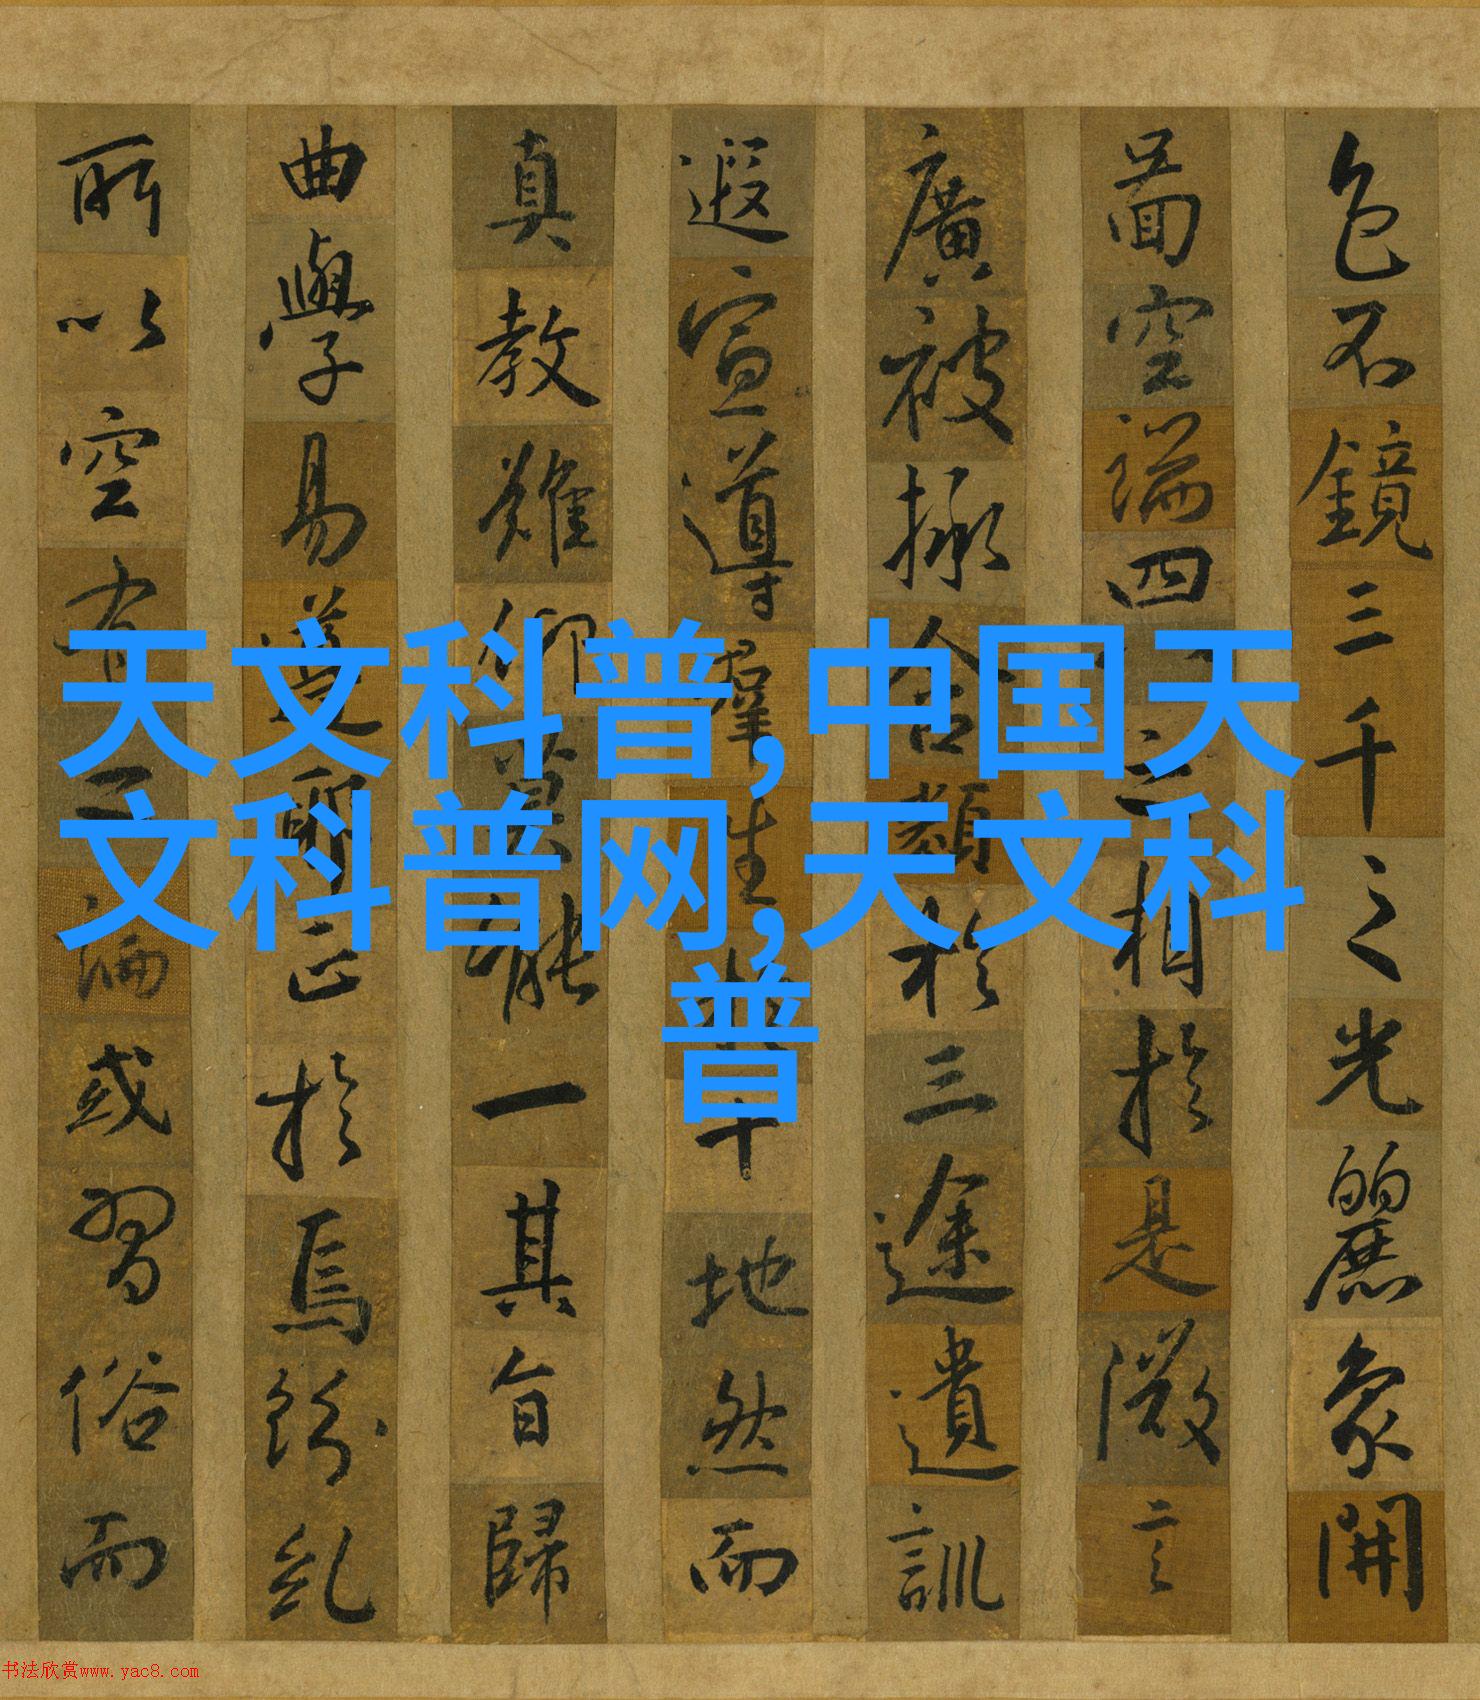 天文科普,中国天
文科普网,天文科
普
色不鏡三千之光麗象開
圖空端四八之相於是微言
廣被拯含類於三途遺訓
遐宣導羣生於十地然而
真教難仰莫能一其旨歸
曲學易遵邪正於焉紛糺
所以空有之論或習俗而
书法欣赏www.yac8.com